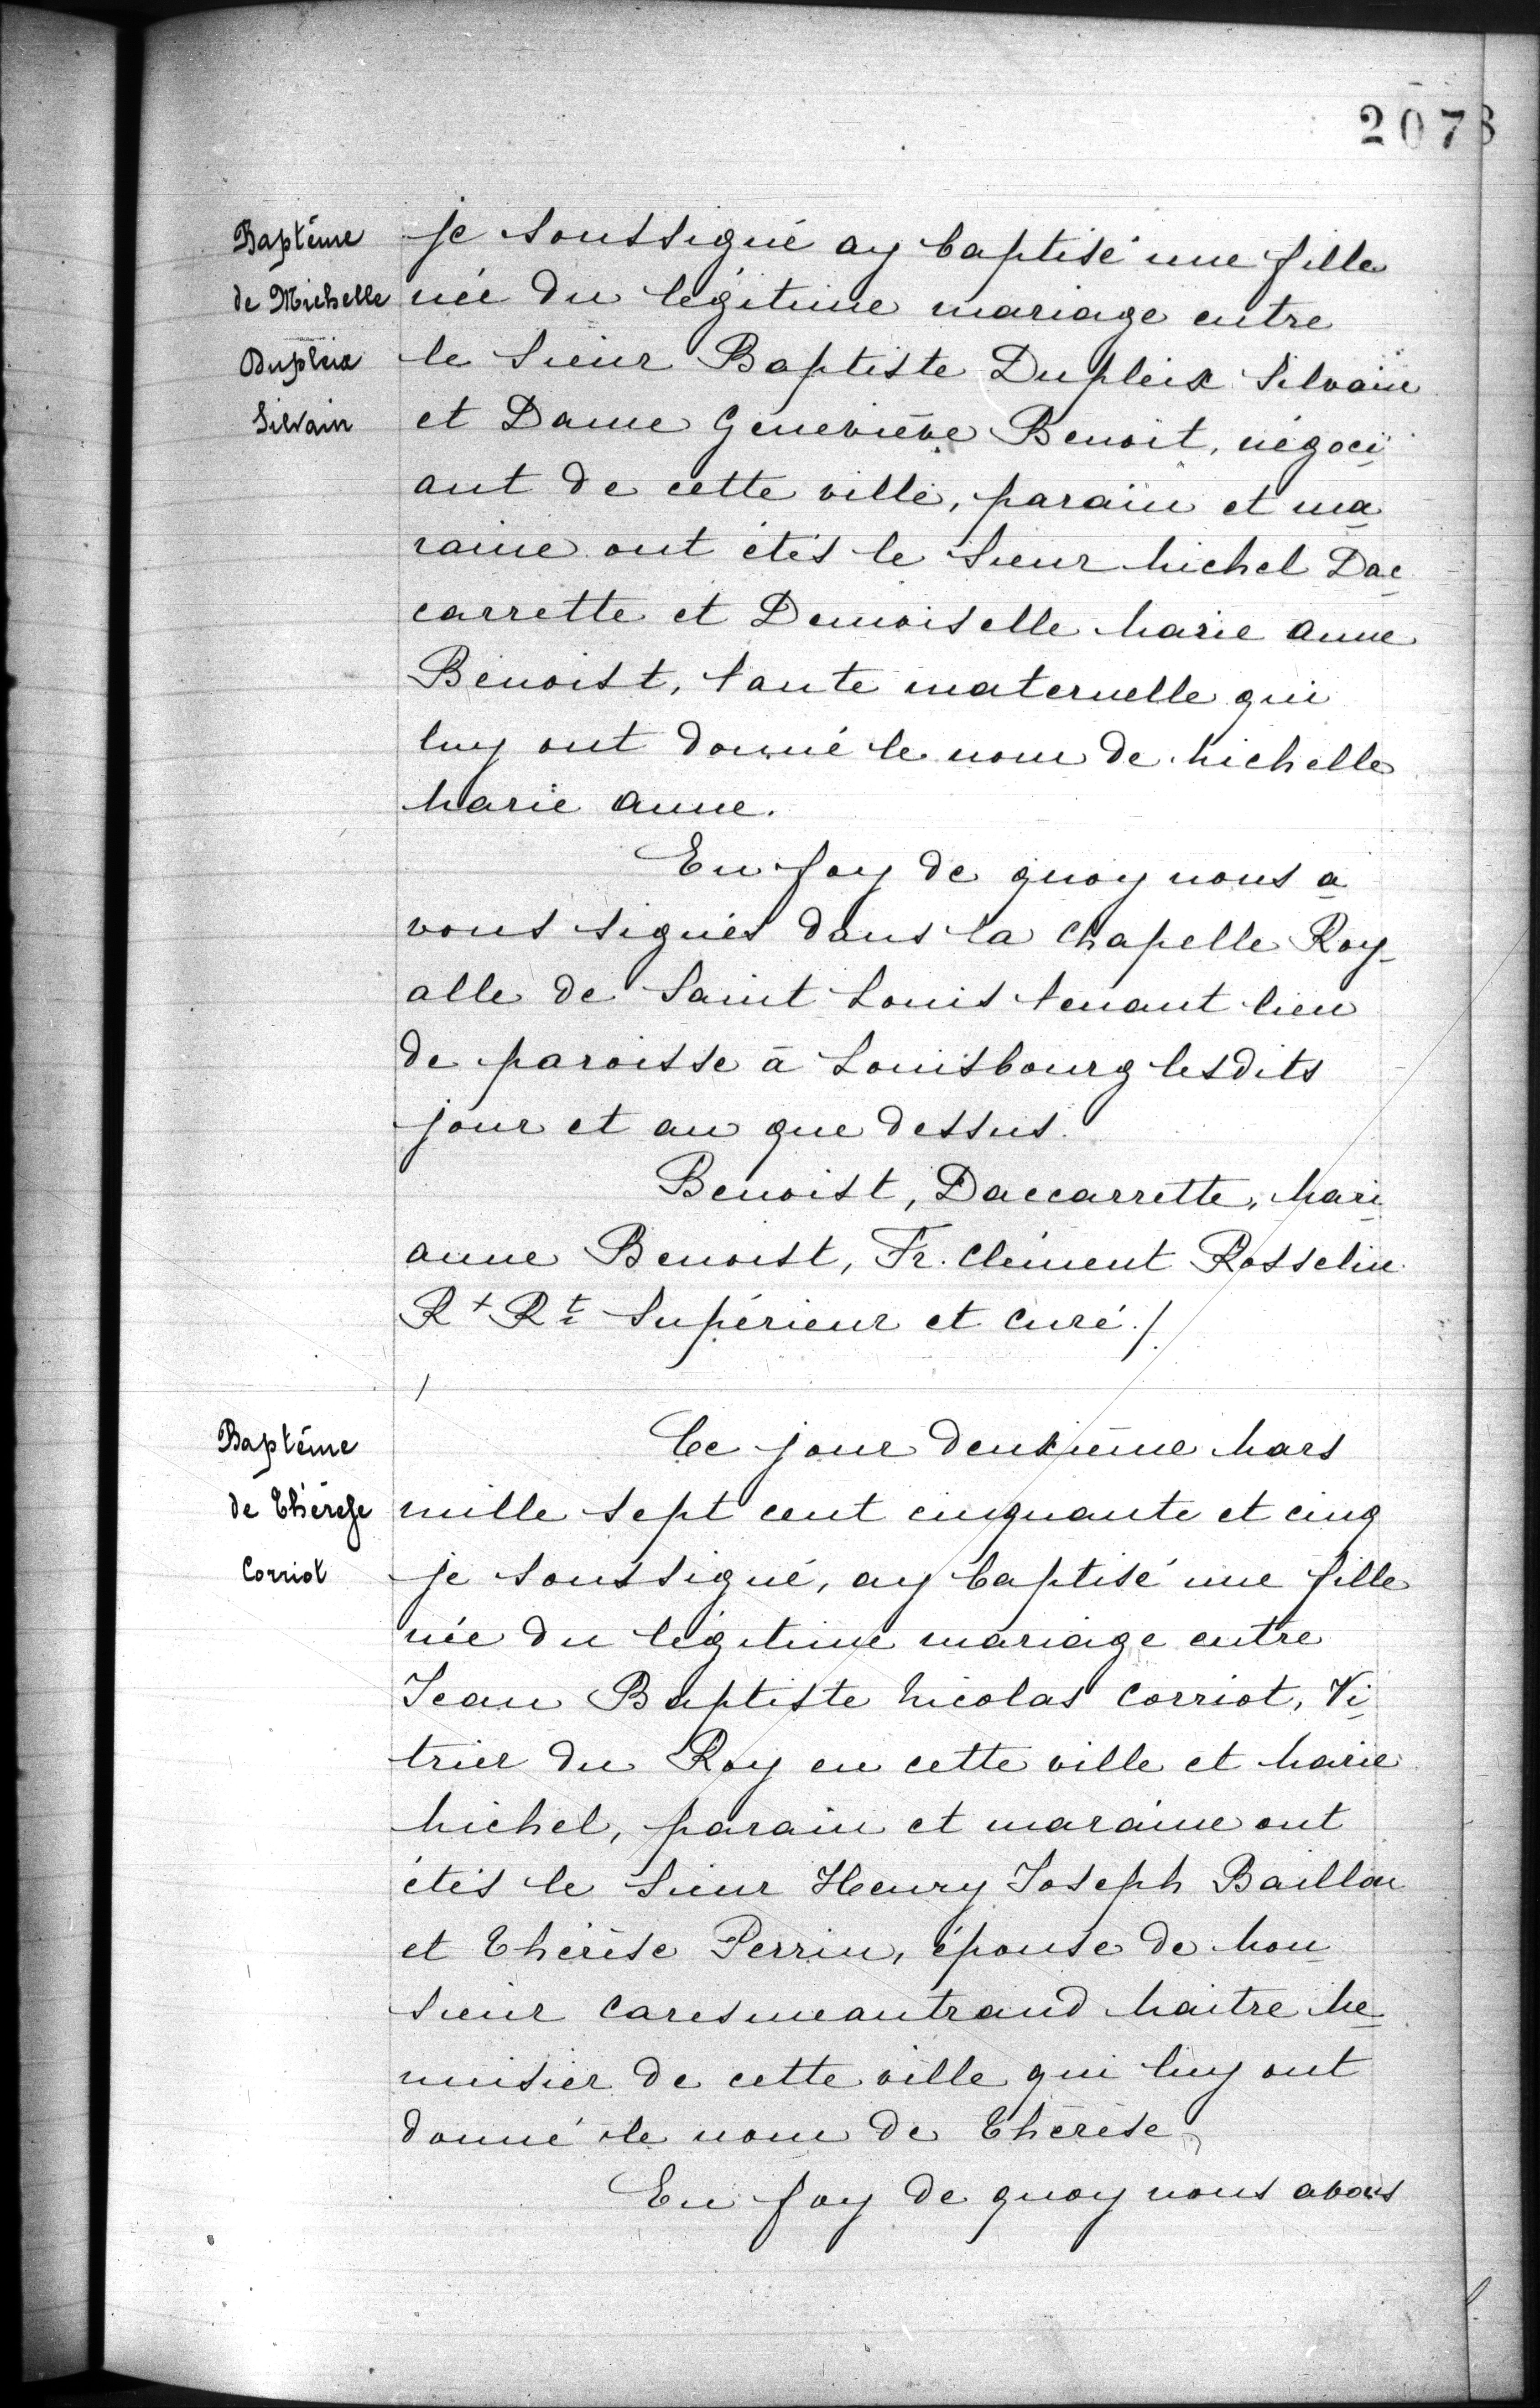 2073
Baptême
de Michelle
Dupleix
Silvain
je soussigné ay baptisé une fille
née du légitime mariage entre
le Sieur Baptiste Dupleix Silvain
et Dame Geneviève Benoit, négoci
ant de cette ville, parain et ma
raine ont étés le Sieur Michel Dac
carrette et Demoiselle Marie Anne
Benoist, tante maternelle qui
luy ont donné le nom de Michelle
Marie Anne.
En foy de quoy nous a
vons signés dans la Chapelle Roy-
alle de Saint Louis tenant lieu
de paroisse à Louisbourg lesdits
jour et an que dessus.
Benoist, Daccarrette, Mari
anne Benoist, Fr. Clément Rosselin
Rt Rt Supérieur et Curé./.
Baptême
de Thérèse
Corriot
Ce jour deuxième Mars
mille sept cent cinquante et cinq
je soussigné, ay baptisé une fille
née du légitime mariage entre
Jean Baptiste Nicolas Corriot, Vi
trier du Roy en cette ville et Marie
Michel, parain et maraine ont
étés le Sieur Henry Joseph Baillon
et Thérèse Perrin, épouse de Mon
sieur Caresmeantrand Maitre Me
nuisier de cette ville qui luy ont
donné le nom de Thérèse.
En foy de quoy nous avons